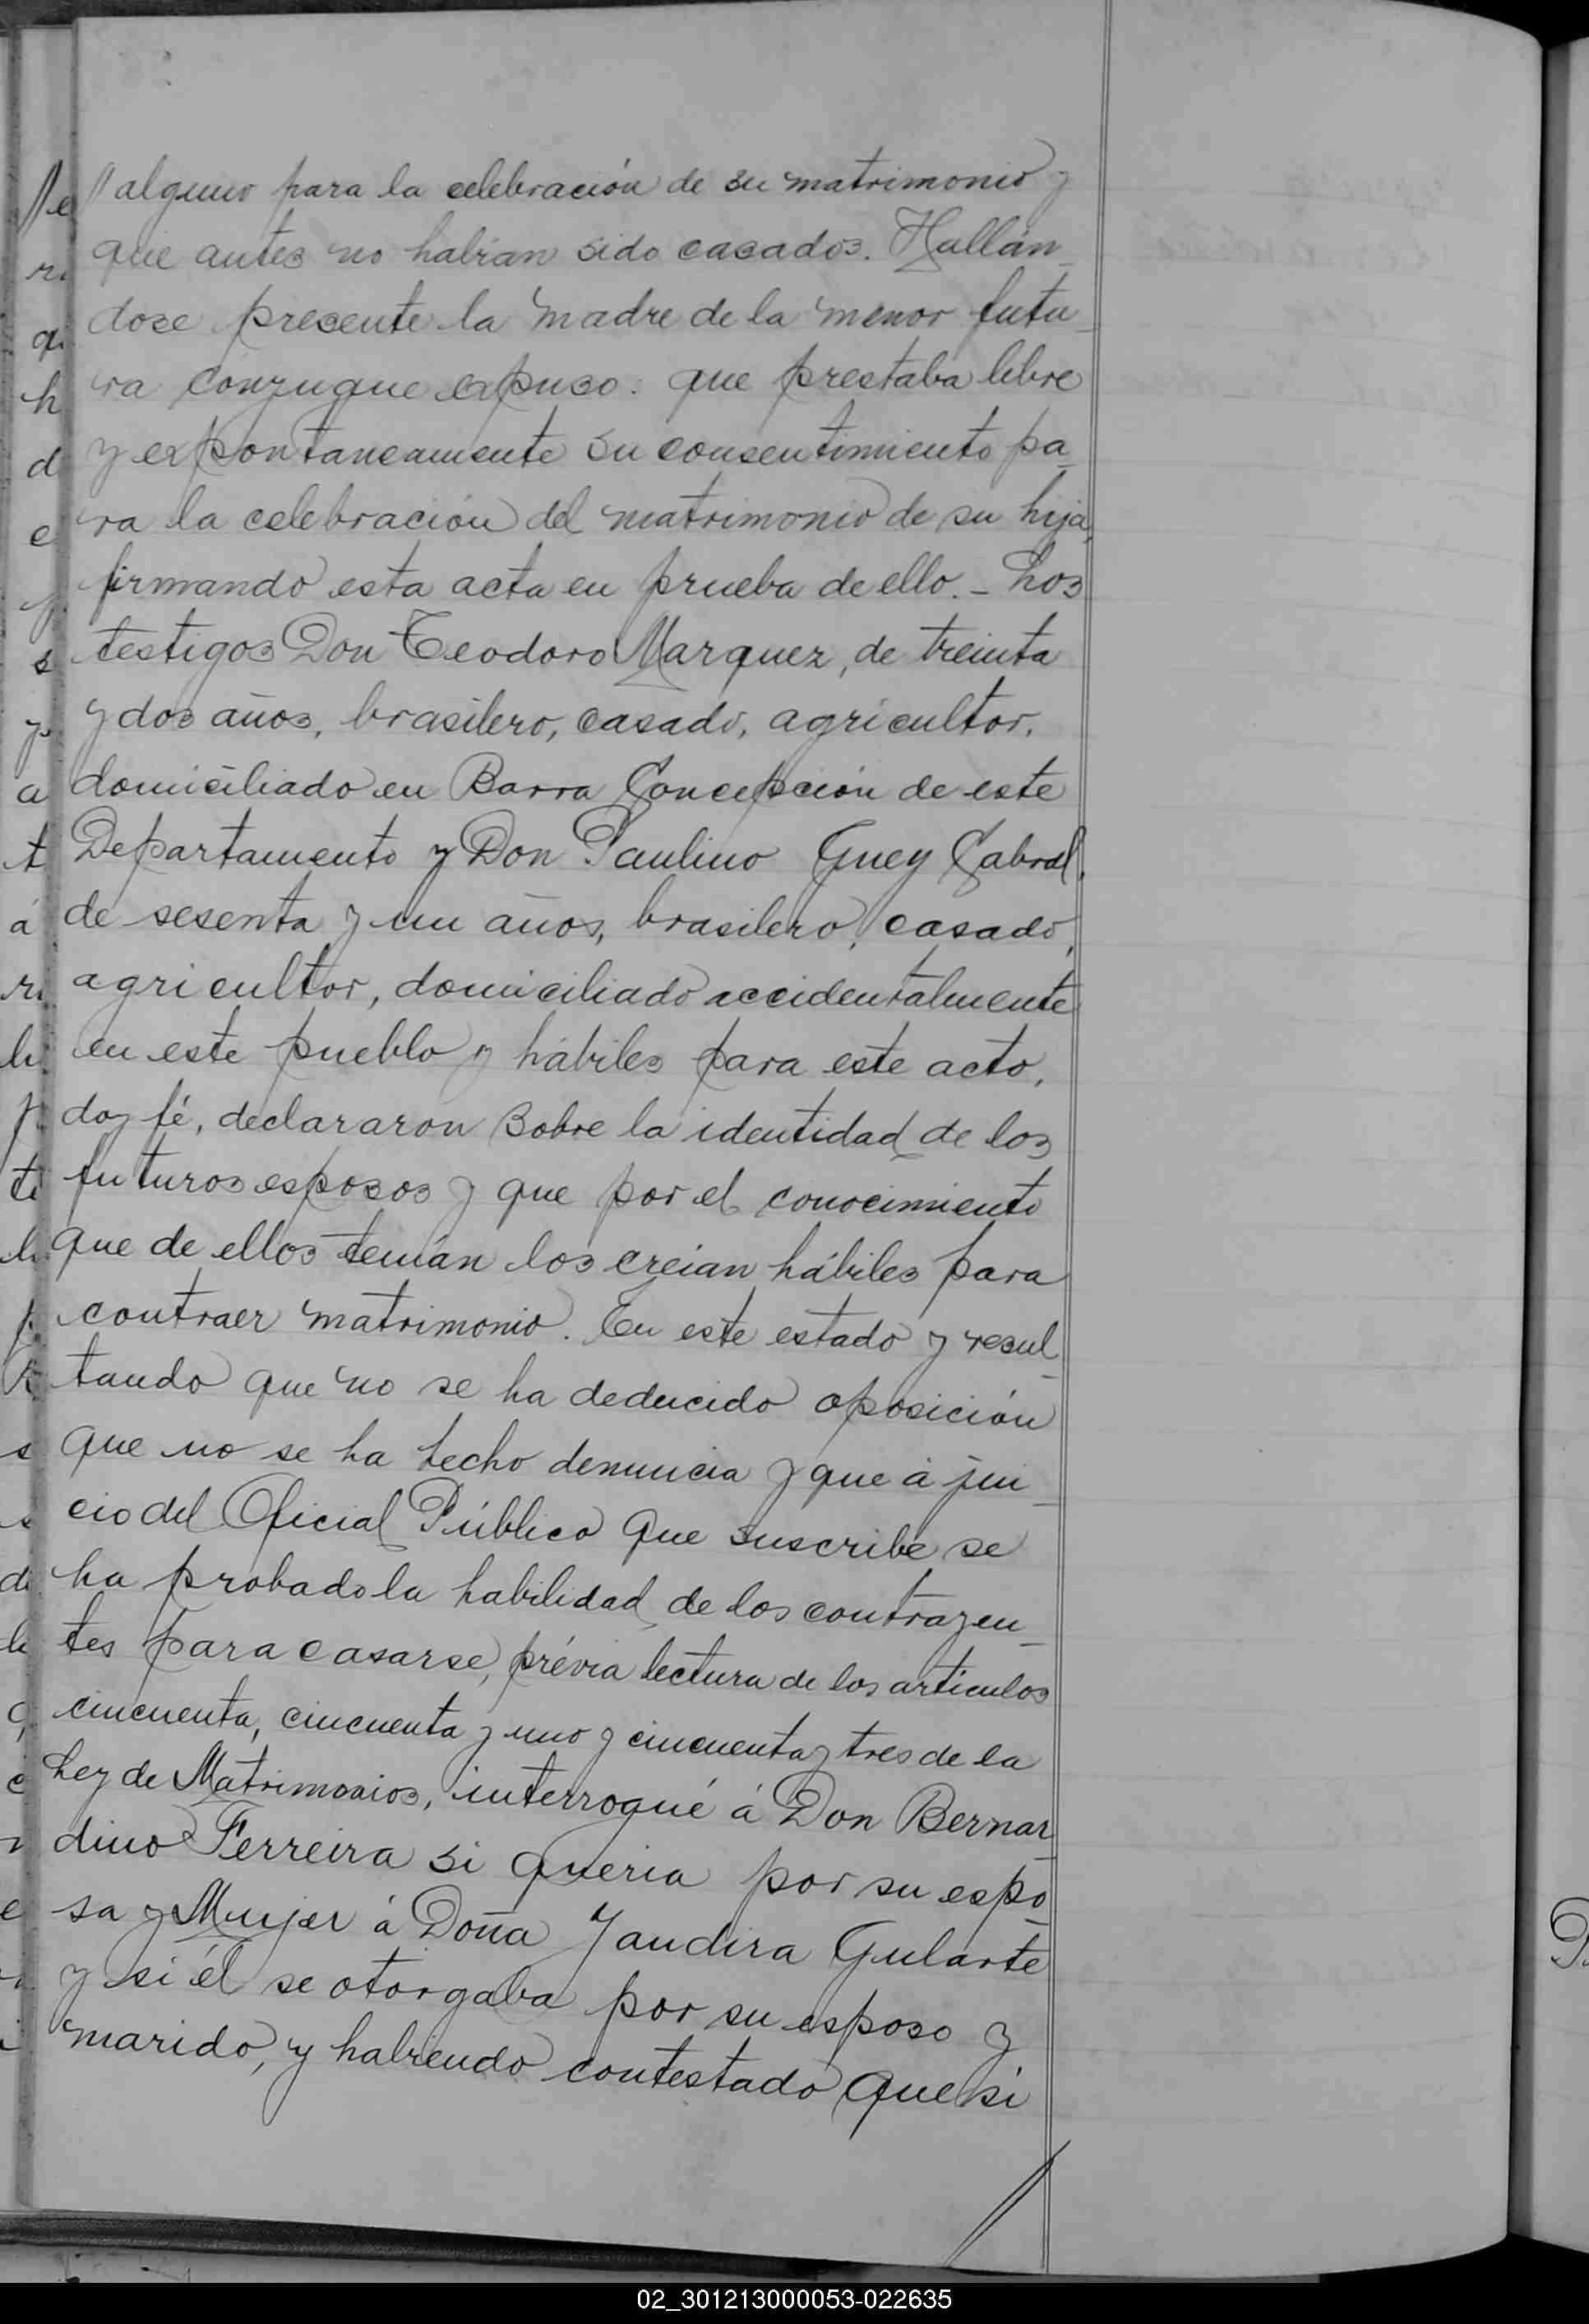 // alguno para la celebración de su matrimonio y
que antes no habían sido casados. Hallán_
dose presente la madre de la menor futu_
ra cónyugue expuso: que prestaba libre
y expontaneamente su consentimiento pa_
ra la celebración del matrimonio de su hija,
firmando esta acta en prueba de ello. - Los
testigos Don Teodoro Marquez, de treinta
y dos años, brasilero, casado, agricultor,
domiciliado en Barra Concepción de este
Departamento y Don Paulino Cabral,
de sesenta y un años, brasilero, casado,
agricultor, domiciliado accidentalmente
en este pueblo y hábiles para este acto,
doy fé, declararon sobre la identidad de los
futuros esposos y que por el conocimiento
que de ellos tenían los creían hábiles para
contraer matrimonio. En este estado y resul_
tando que no se ha deducido oposición
que no se ha hecho denuncia y que á jui_
cio del Oficial Público que suscribe se
ha probado la habilidad de los contrayen_
tes para casarse, prévia lectura de los artículos
cincuenta, cincuenta y uno y cincuenta y tres de la
Ley de Matrimonios, interrogué á Don Bernar_
dino Ferreira si queria por su espo_
sa y Mujer á Doña Jandira Gularte
y si él se otorgaba por su esposo y
marido, y habiendo contestado que si
//
02_301213000053-022635